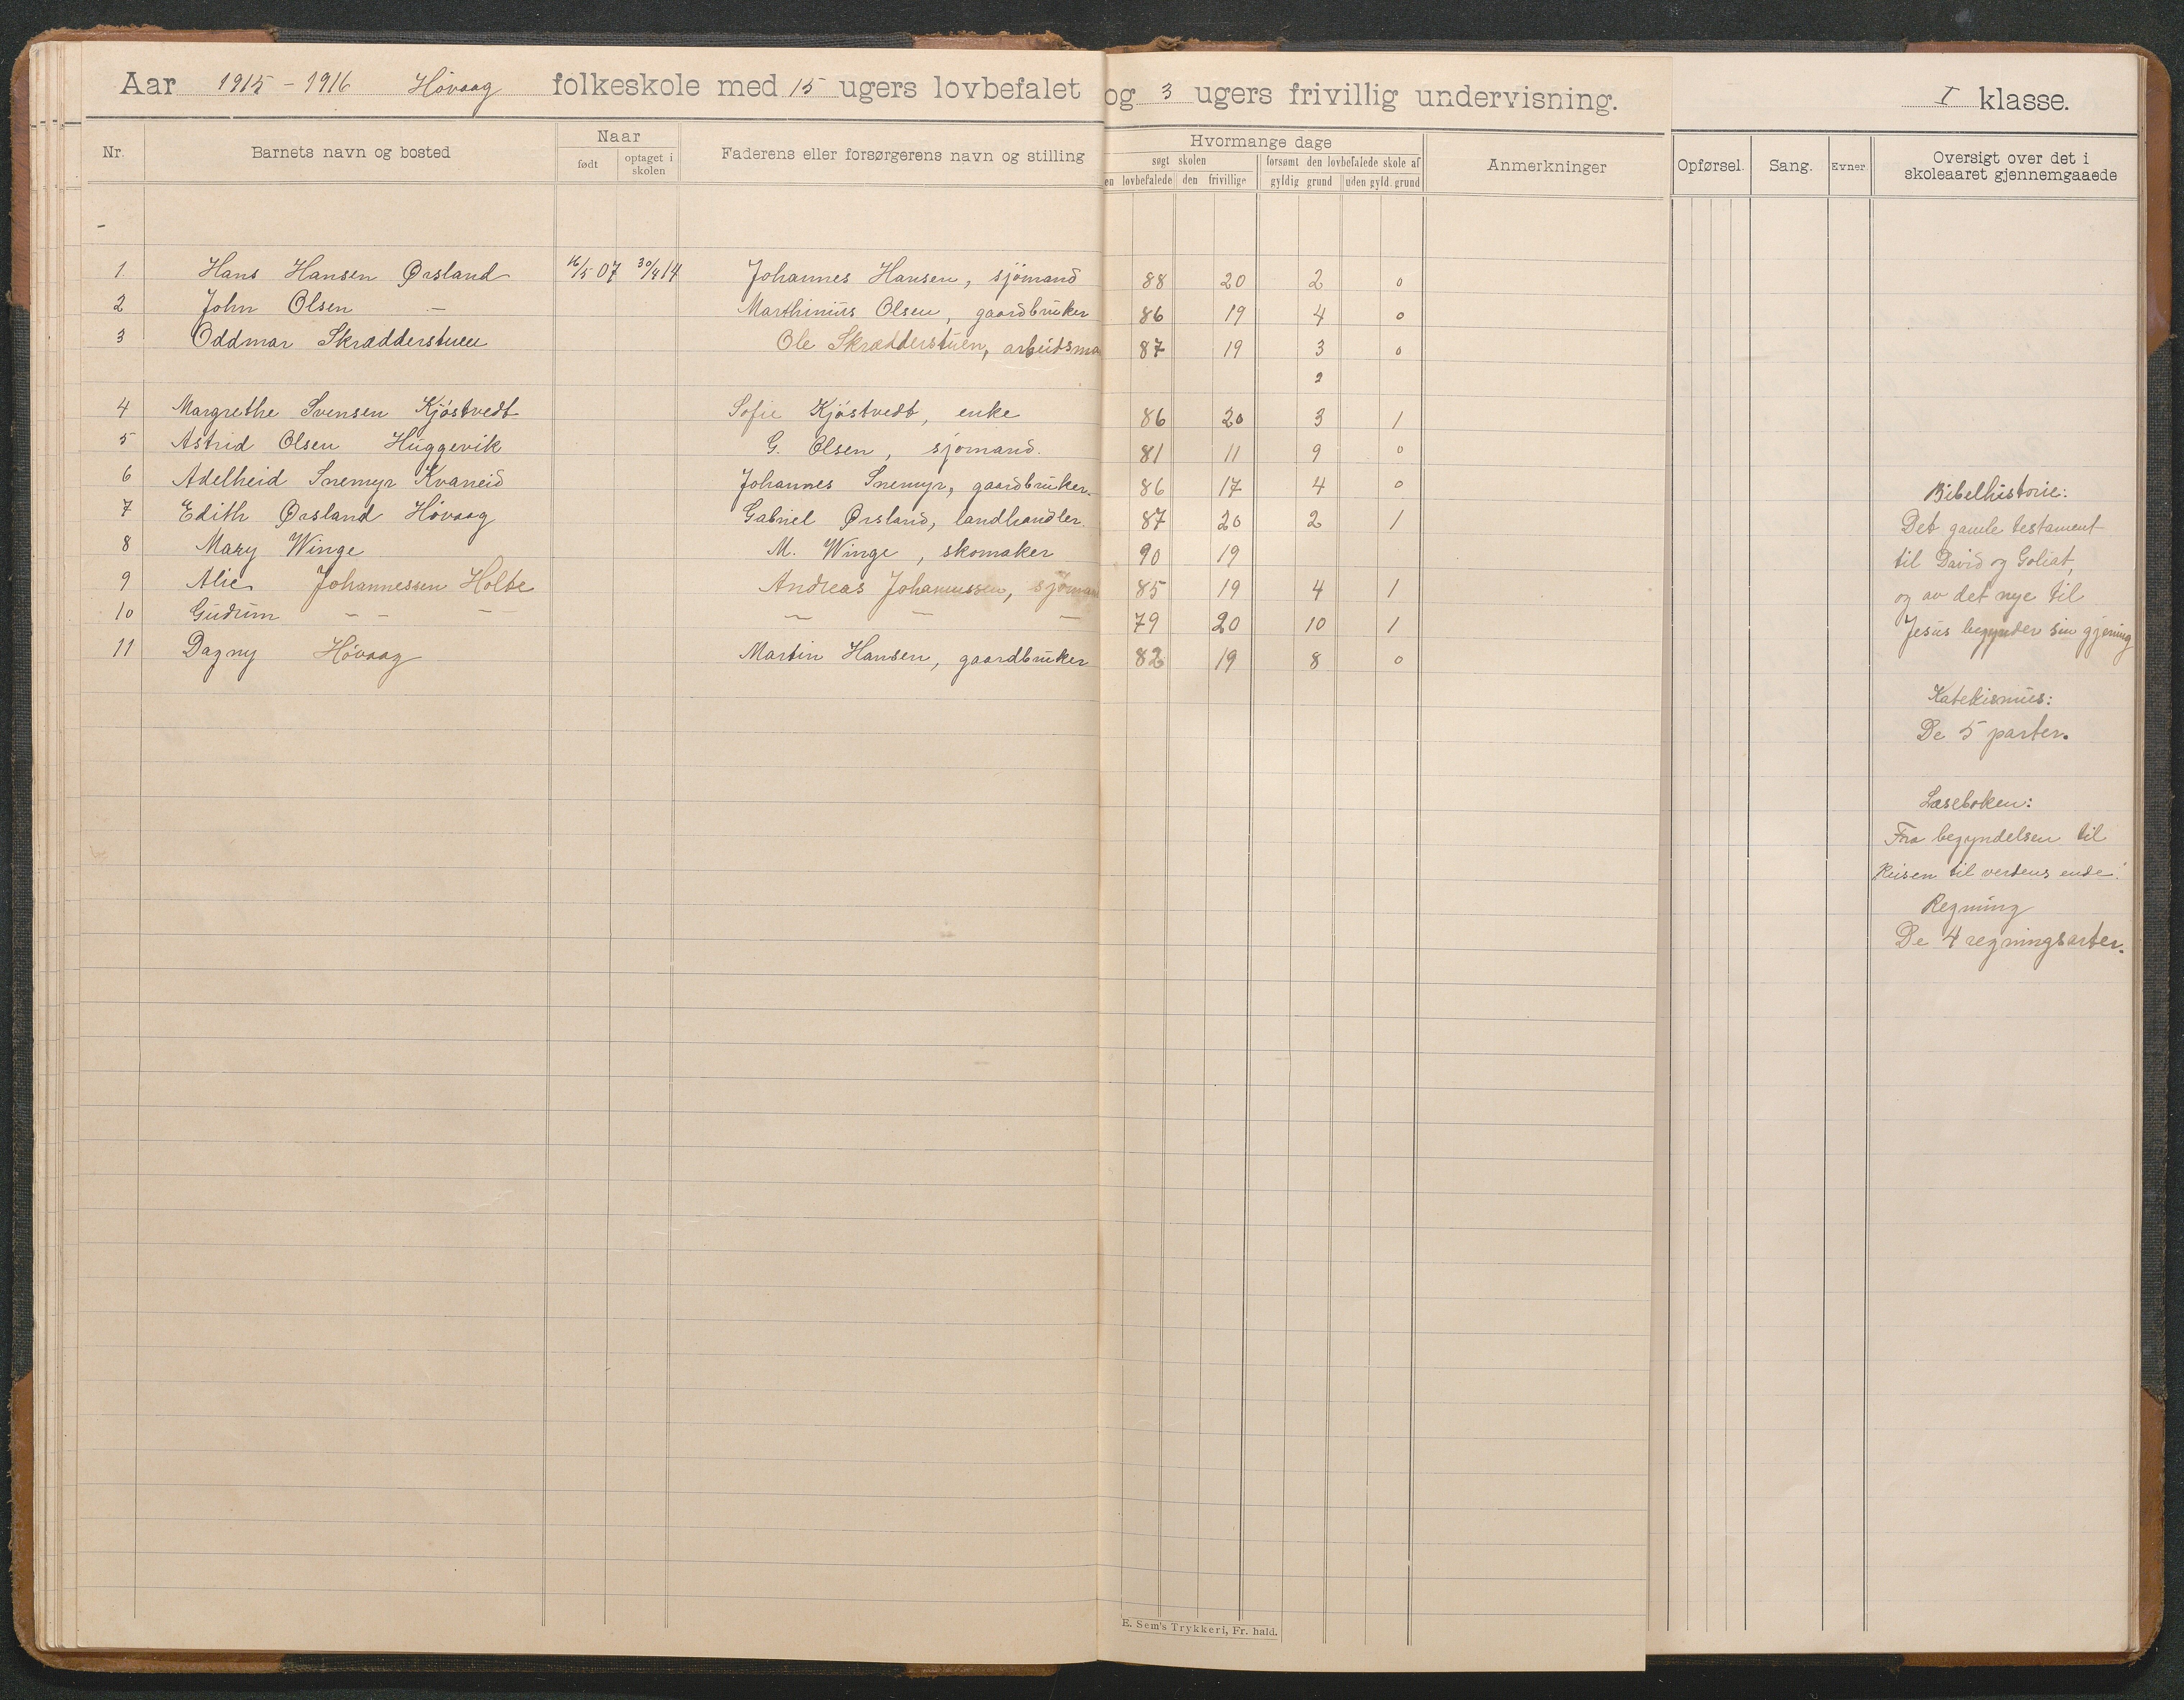 Aar 1915-1916 Høvaag folkeskole med 15 ugers lovbefalet og 3 ugers frivillig undervisning. I klasse.
Nr. Barnets navn og bosted Naar Faderens eller forsørgerens navn og stilling Hvormange dage Anmerkninger Opførsel. Sang. Evner Oversigt over det i skoleaaret gjennemgaaede
født optaget i skolen søgt skolen forsømt den lovbefalede skole af
en lovbefalede den frivillige gyldig grund uden gyld. grund
1. Hans Hansen Ørsland 16/5 07 30/4 14 Johannes Hansen, sjømand 88 20 2 0
2 John Olsen — Marthinius Olsen, gaardbruker 86 19 4 0
3 Oddmar Skrædderstuen Ole Skrædderstuen, arbeidsma 87 19 3 0
2
4 Margrethe Svensen Kjöstvedt Sofie Kjöstvedt, enke 86 20 3 1
5 Astrid Olsen Huggevik G. Olsen, sjømand. 81 11 9 0
6 Adelheid Snemyr Kvaneid Johannes Snemyr, gaardbruker. 86 17 4 0
7 Edith Ørsland Høvaag Gabriel Ørsland, landhandler. 87 20 2 1
8 Mary Winge M. Winge, skomaker 90 19
9 Alie Johannessen Holte Andreas Johannessen, sjøman 85 19 4 1
10 Gudrun — — — — — — 79 20 10 1
11 Dagny Høvaag Martin Hansen, gaardbruker 82 19 8 0
Bibelhistorie:
Det gamle testament
til David og Goliat,
og av det nye til
Jesus begynder sin gjerning
Katekismus:
De 5 parter.
Læseboken:
Fra begyndelsen til
Reisen til verdens ende.
Regning
De 4 regningsarter.
E. Sem's Trykkeri, Fr. hald.